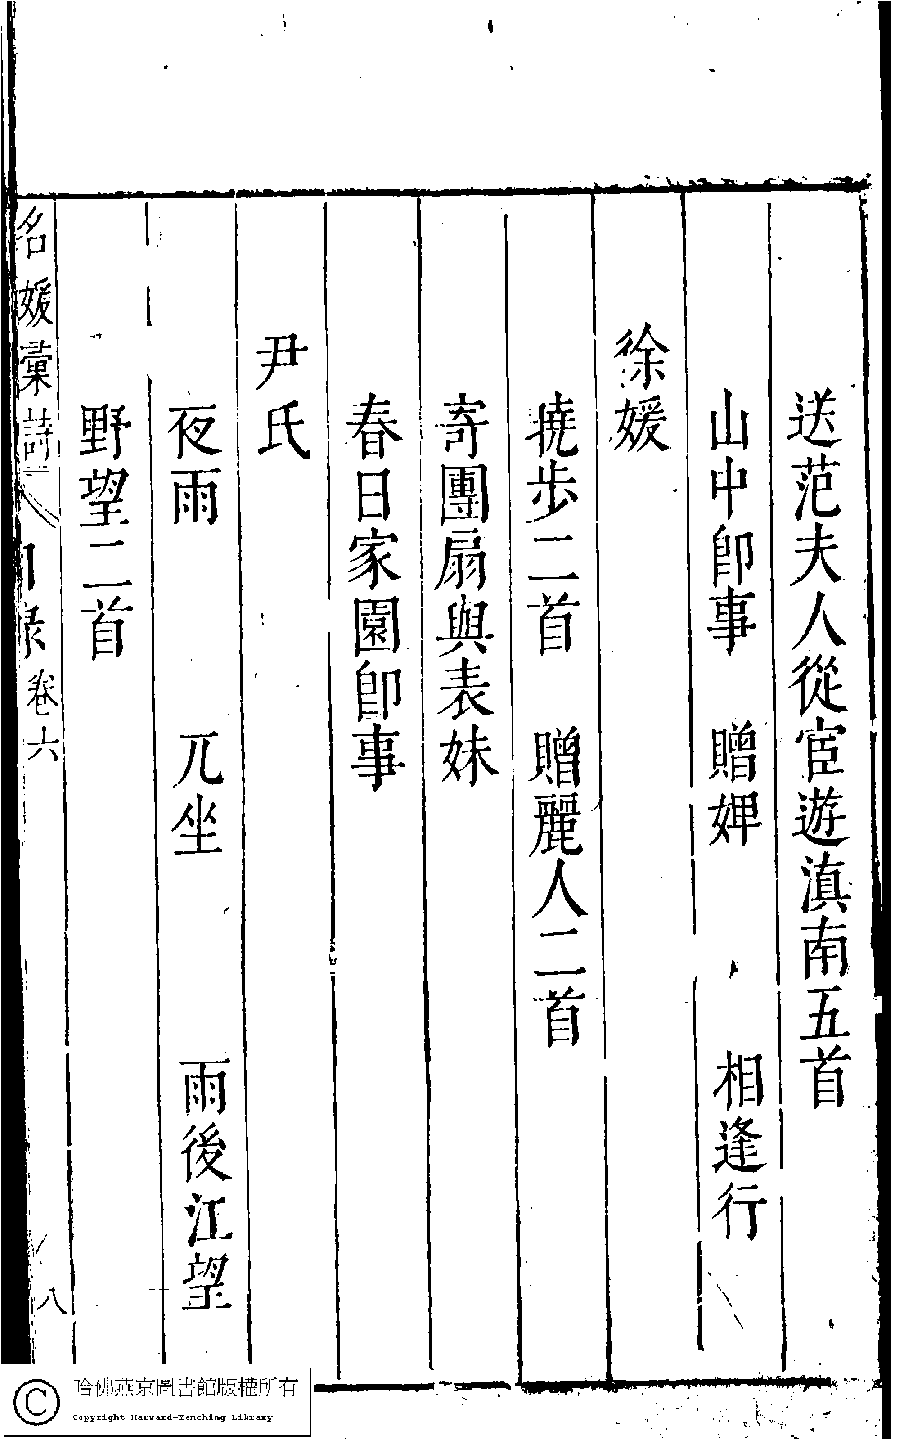 送范夫人從宦遊滇南五首
山中即事 贈婢 相逢行
徐媛
撓步二首 贈麗人二首
寄團扇與表妹
春日家園即事
尹氏
夜雨 兀坐 雨後江望
野望二首
名媛彙詩 目錄卷六 八
哈佛燕京圖書館版權所有
Copyright Harvard-Yenching Library